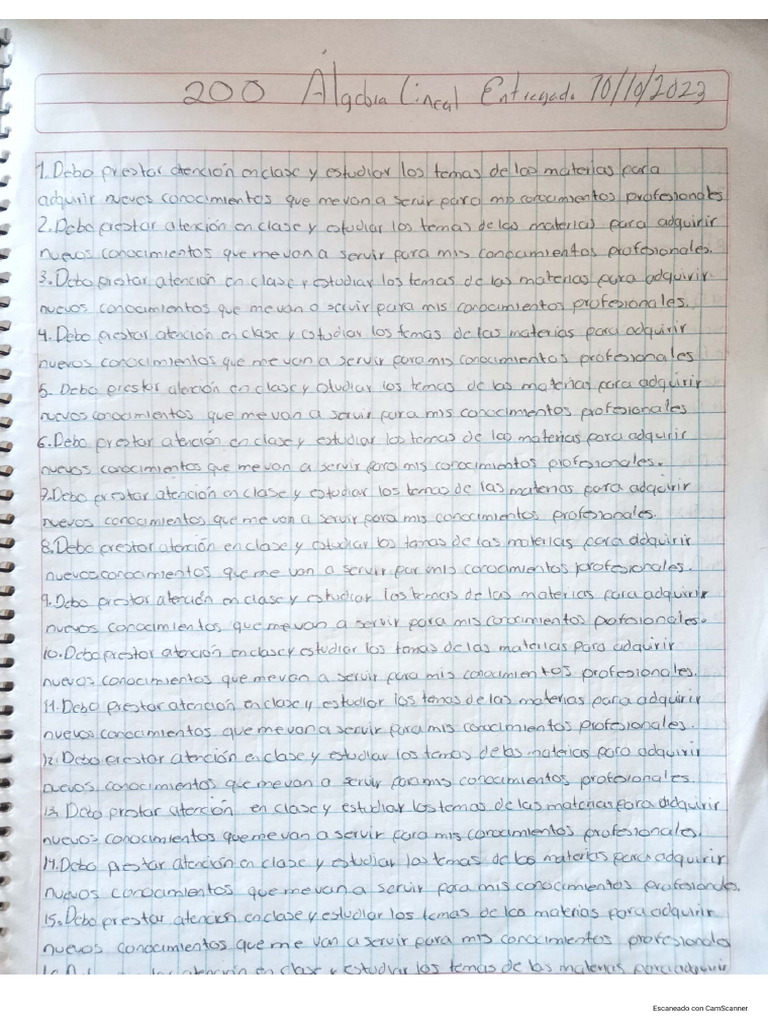 200 Álgebra Lineal Entregado 10/10/2023
1. Debo prestar atención en clase y estudiar los temas de las materias para
adquirir nuevos conocimientos que me van a servir para mis conocimientos profesionales
2. Debo prestar atención en clase y estudiar los temas de las materias para adquirir
nuevos conocimientos que me van a servir para mis conocimientos profesionales.
3. Debo prestar atención en clase y estudiar los temas de las materias para adquirir
nuevos conocimientos que me van a servir para mis conocimientos profesionales.
4. Debo prestar atención en clase y estudiar los temas de las materias para adquirir
nuevos conocimientos que me van a servir para mis conocimientos profesionales
5. Debo prestar atención en clase y studiar los temas de las materias para adquirir
nuevos conocimientos que me van a servir para mis conocimientos profesionales
6. Debo prestar atención en clase y estudiar los temas de las materias para adquirir
nuevos conocimientos que me van a servir para mis conocimientos profesionales.
7. Debo prestar atención en clase y estudiar los temas de las materias para adquirir
nuevos conocimientos que me van a servir para mis conocimientos profesionales.
8. Debo prestar atención en clase y estudiar los temas de las materias para adquirir
nuevos conocimientos que me van a servir par mis conocimientos profesionales.
9. Debo prestar atención en clase y estudiar los temas de las materias para adquirir
nuevos conocimientos que me van a servir para mis conocimientos profesionales.
10. Debo prestar atención en clase y estudiar los temas de las materias para adquirir
nuevos conocimientos que me van a servir para mis conocimientos profesionales.
11. Debo prestar atención en clase y estudiar los temas de las materias para adquirir
nuevos conocimientos que me van a servir para mis conocimientos profesionales.
12. Debo prestar atención en clase y estudiar los temas de las materias para adquirir
nuevos conocimientos que me van a servir para mis conocimientos profesionales.
13. Debo prestar atención en clase y estudiar los temas de las materias para adquirir
nuevos conocimientos que me van a servir para mis conocimientos profesionales.
14. Debo prestar atención en clase y estudiar las temas de las materias para adquirir
nuevos conocimientos que me van a servir para mis conocimientos profesionales.
15. Debo prestar atención en clase y estudiar los temas de las materias para adquirir
nuevos conocimientos que me van a servir para mis conocimientos profesionales
atención en clase y estudiar los temas de las materias para adquirir
Escaneado con CamScanner